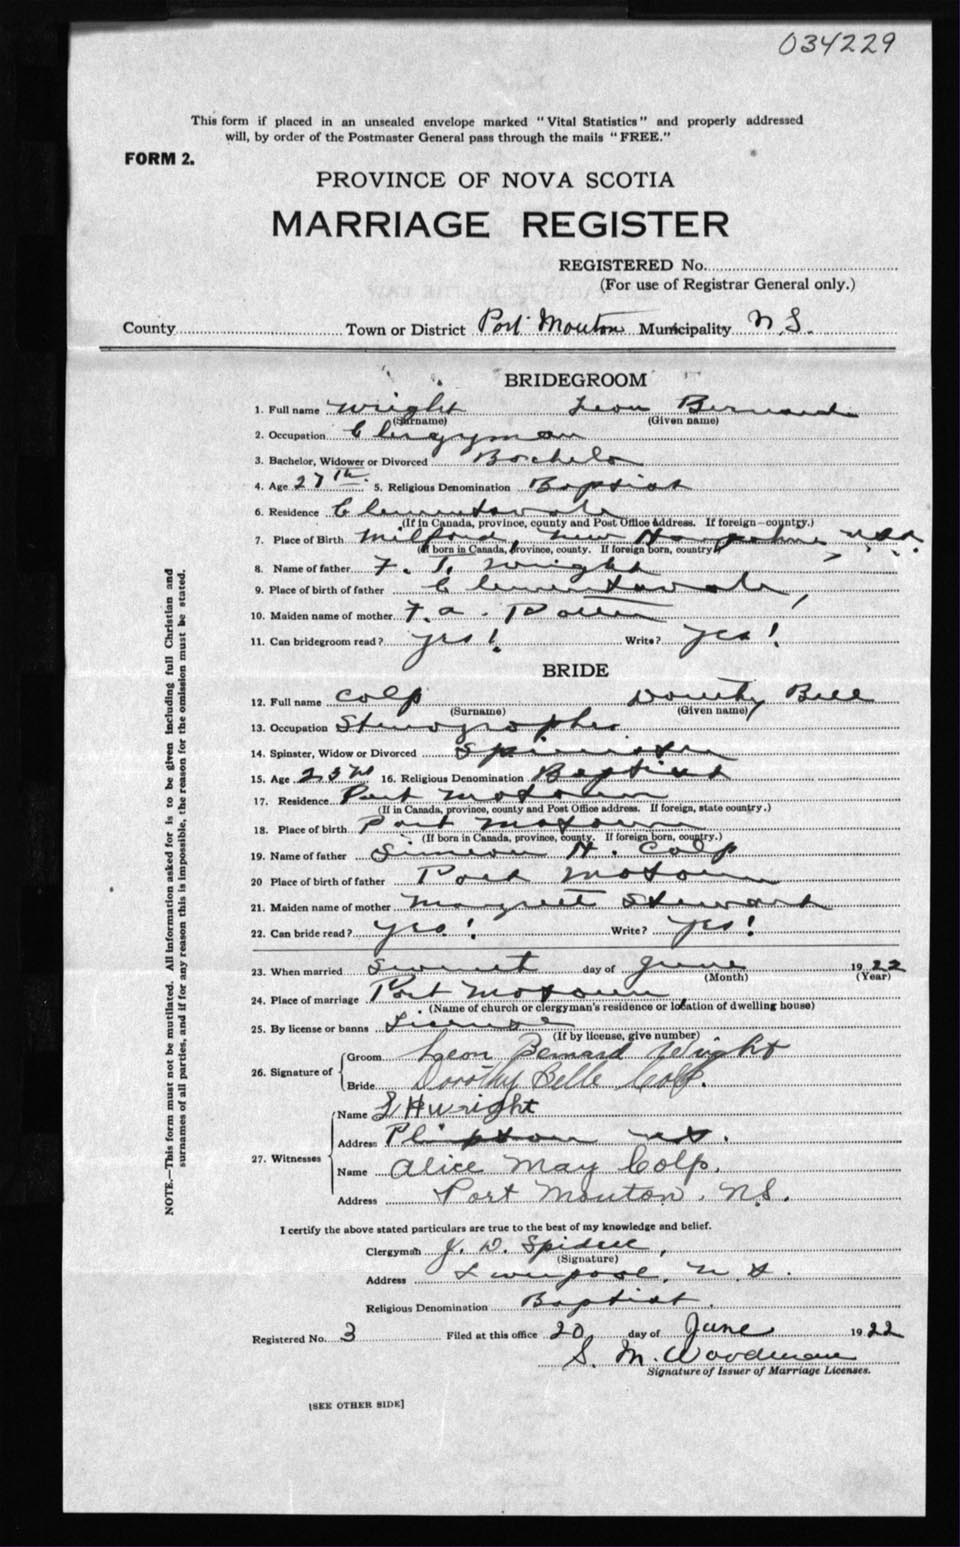 034229
This form if placed in an unsealed envelope marked "Vital Statistics" and properly addressed
will, by order of the Postmaster General pass through the mails "FREE."
FORM 2.
PROVINCE OF NOVA SCOTIA
MARRIAGE REGISTER
REGISTERED No.
(For use of Registrar General only.)
County Town or District Port Mouton Municipality N.S.
BRIDEGROOM
1. Full name Wright Leon Bernard
(Surname) (Given name)
2. Occupation Clergyman
3. Bachelor, Widower or Divorced Bachelor
4. Age 27th 5. Religious Denomination Baptist
6. Residence Clementsvale
(If in Canada, province, county and Post Office Address. If foreign—country.)
7. Place of Birth Milford, New Hampshire U.S.A.
(If born in Canada, province, county. If foreign born, country)
8. Name of father Wright
9. Place of birth of father Clementsvale
10. Maiden name of mother F. A.
11. Can bridegroom read? Yes! Write? Yes!
BRIDE
12. Full name Colp Dorothy Bell
(Surname) (Given name)
13. Occupation Stenographer
14. Spinster, Widow or Divorced Spinster
15. Age 23rd 16. Religious Denomination Baptist
17. Residence Port Motoun
(If in Canada, province, county and Post Office address. If foreign, state country.)
18. Place of birth Port Motoun
(If born in Canada, province, county. If foreign born, country.)
19. Name of father Simeon H. Colp
20 Place of birth of father Port Motoun
21. Maiden name of mother Margrett Steward
22. Can bride read? Yes! Write? Yes!
23. When married day of June 1922
(Month) (Year)
24. Place of marriage Port Motoun
(Name of church or clergyman's residence or location of dwelling house)
25. By license or banns License
(If by license, give number)
26. Signature of
Groom Leon Bernard Wright
Bride Dorothy Belle Colp.
27. Witnesses
Name Wright
Address N.S.
Name Alice May Colp.
Address Port Mouton, N.S.
I certify the above stated particulars are true to the best of my knowledge and belief.
Clergyman J. D. Spidell
(Signature)
Address Liverpool, N.S.
Religious Denomination Baptist.
Registered No. 3 Filed at this office 20 day of June 1922
S. M. Woodman
Signature of Issuer of Marriage Licenses.
[SEE OTHER SIDE]
NOTE.—This form must not be mutilated. All information asked for is to be given including full Christian and
surnames of all parties, and if for any reason this is impossible, the reason for the omission must be stated.